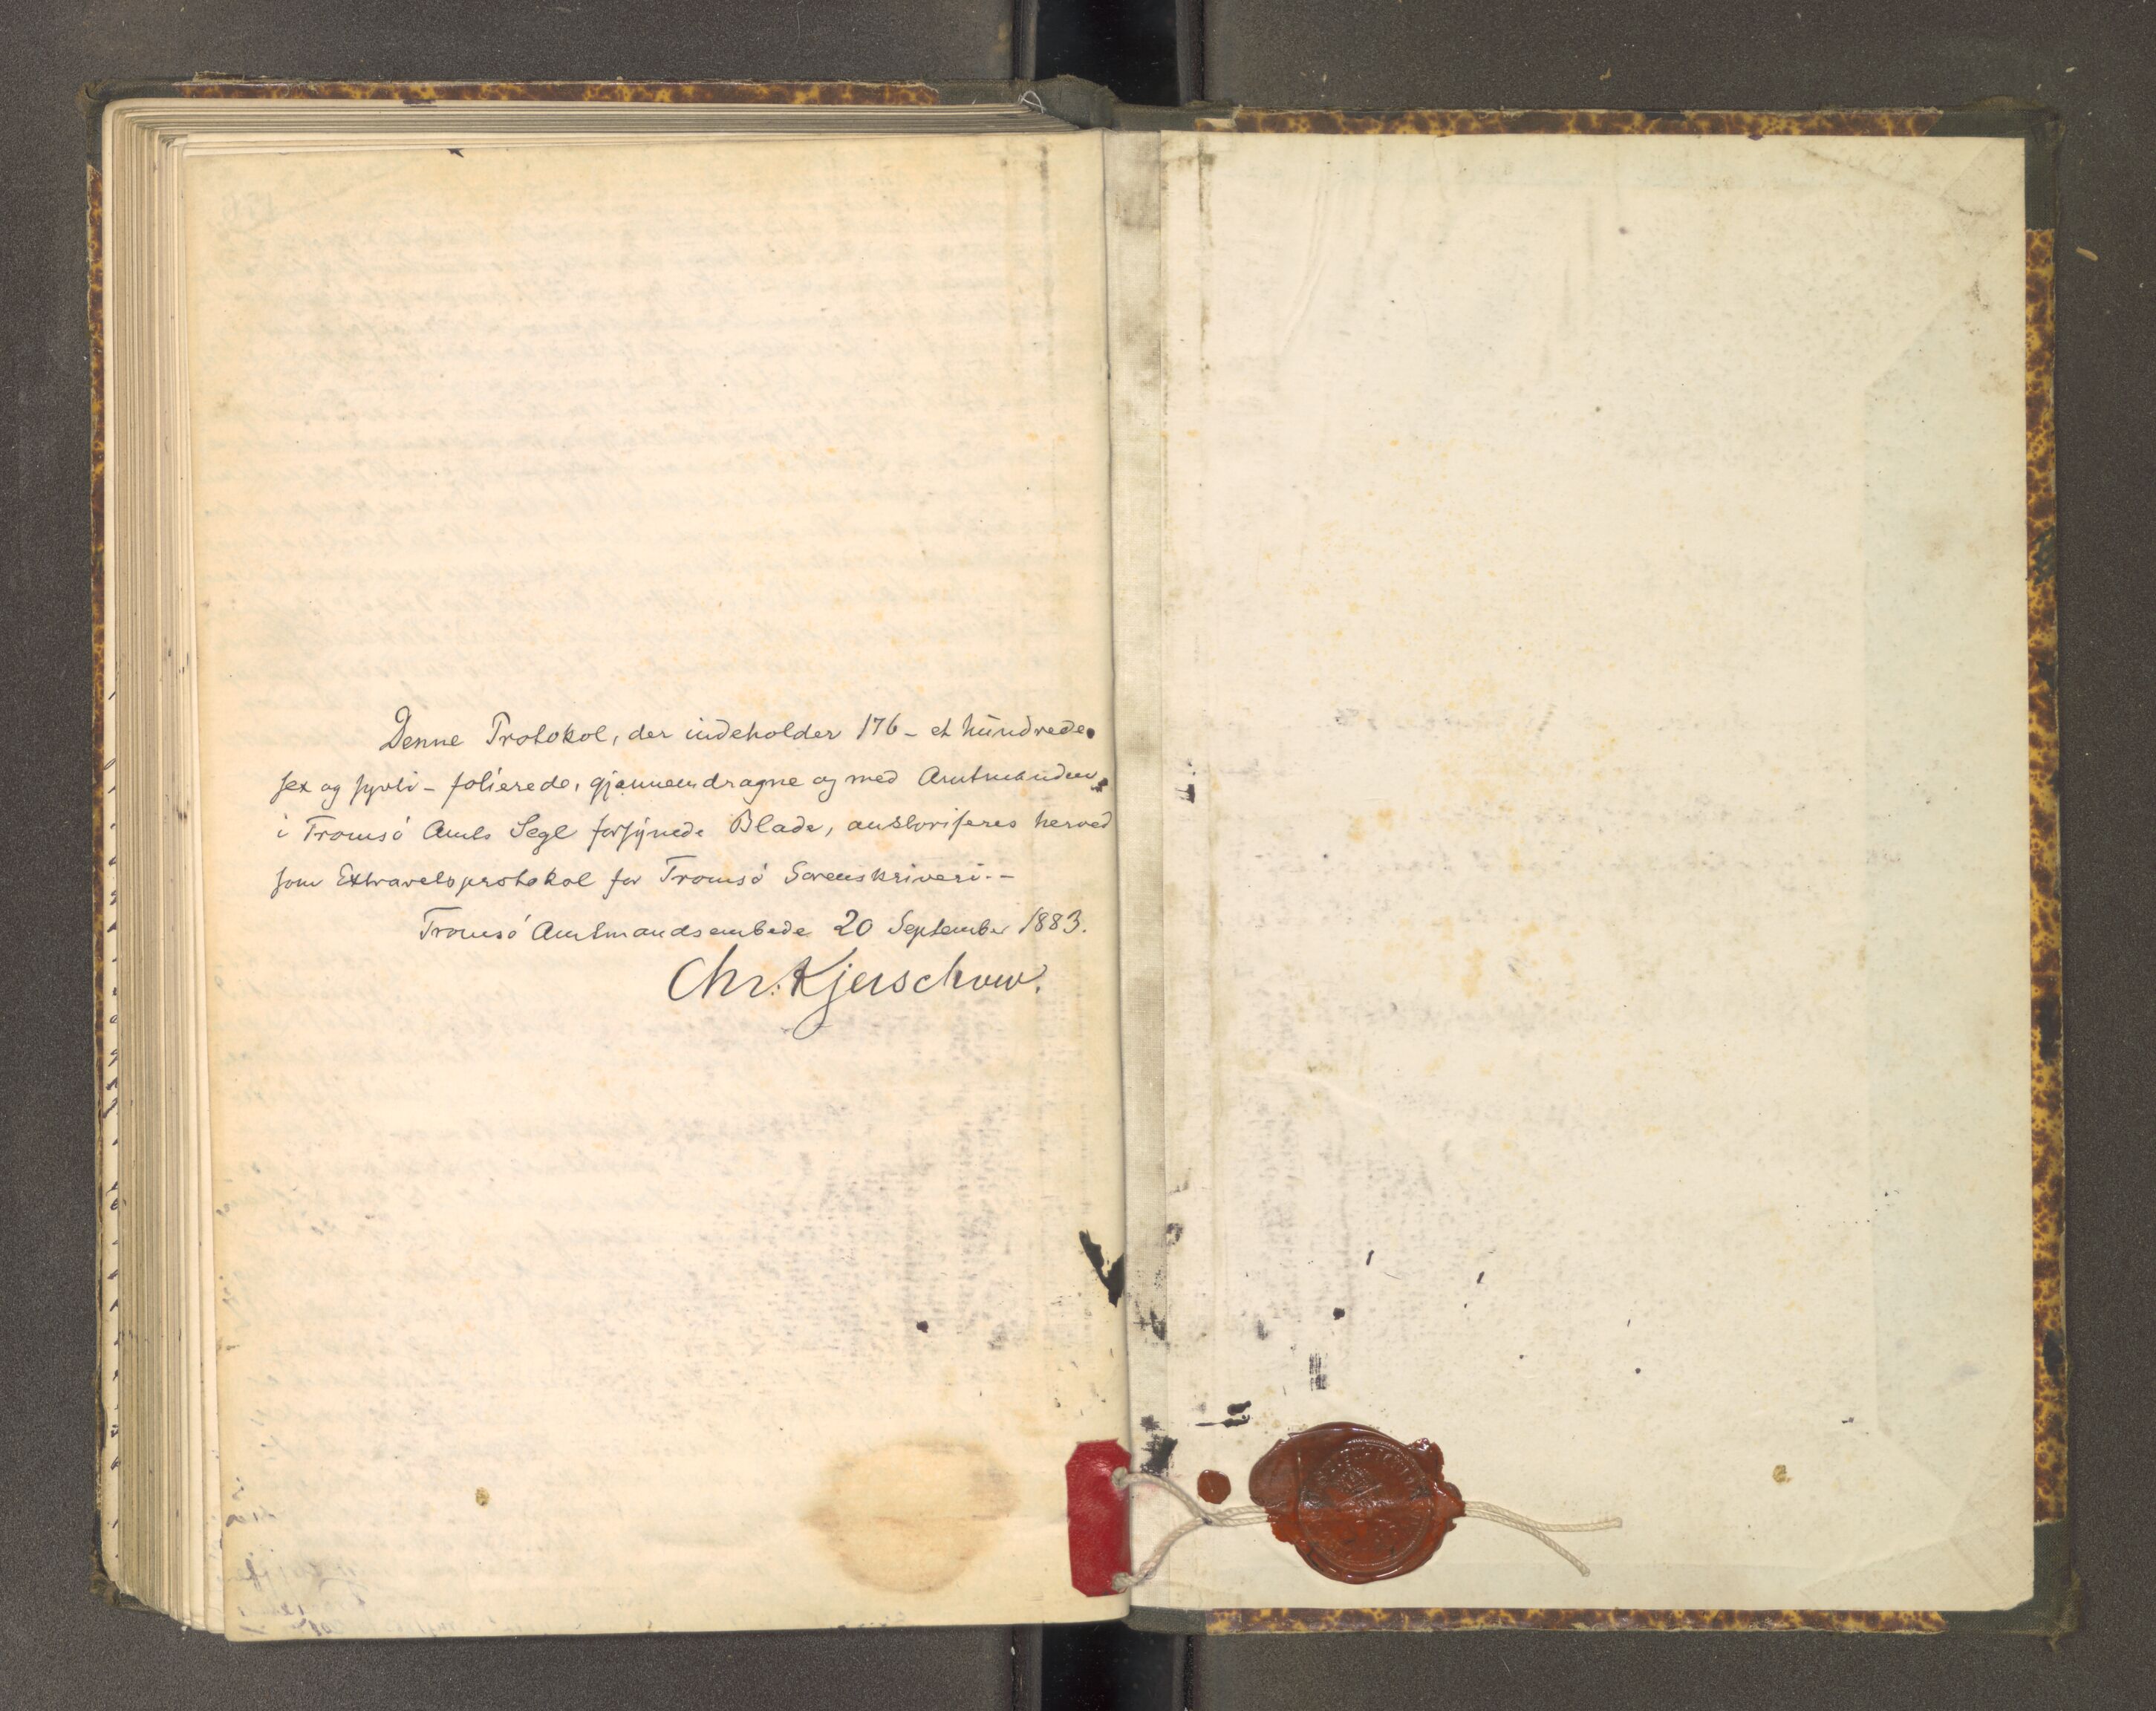 Denne Protokol, der indeholder 176 - et hundrede
sex og sytti - folierede, gjennemdragne og med Amtmanden
i Tromsø Amts Segl forsynede Blade, auktoriseres herved
som Extraretsprotokol for Tromsø Sorenskriveri. -
Tromsø Amtmandsembede 20 September 1883.
Chr: Kjerschow.